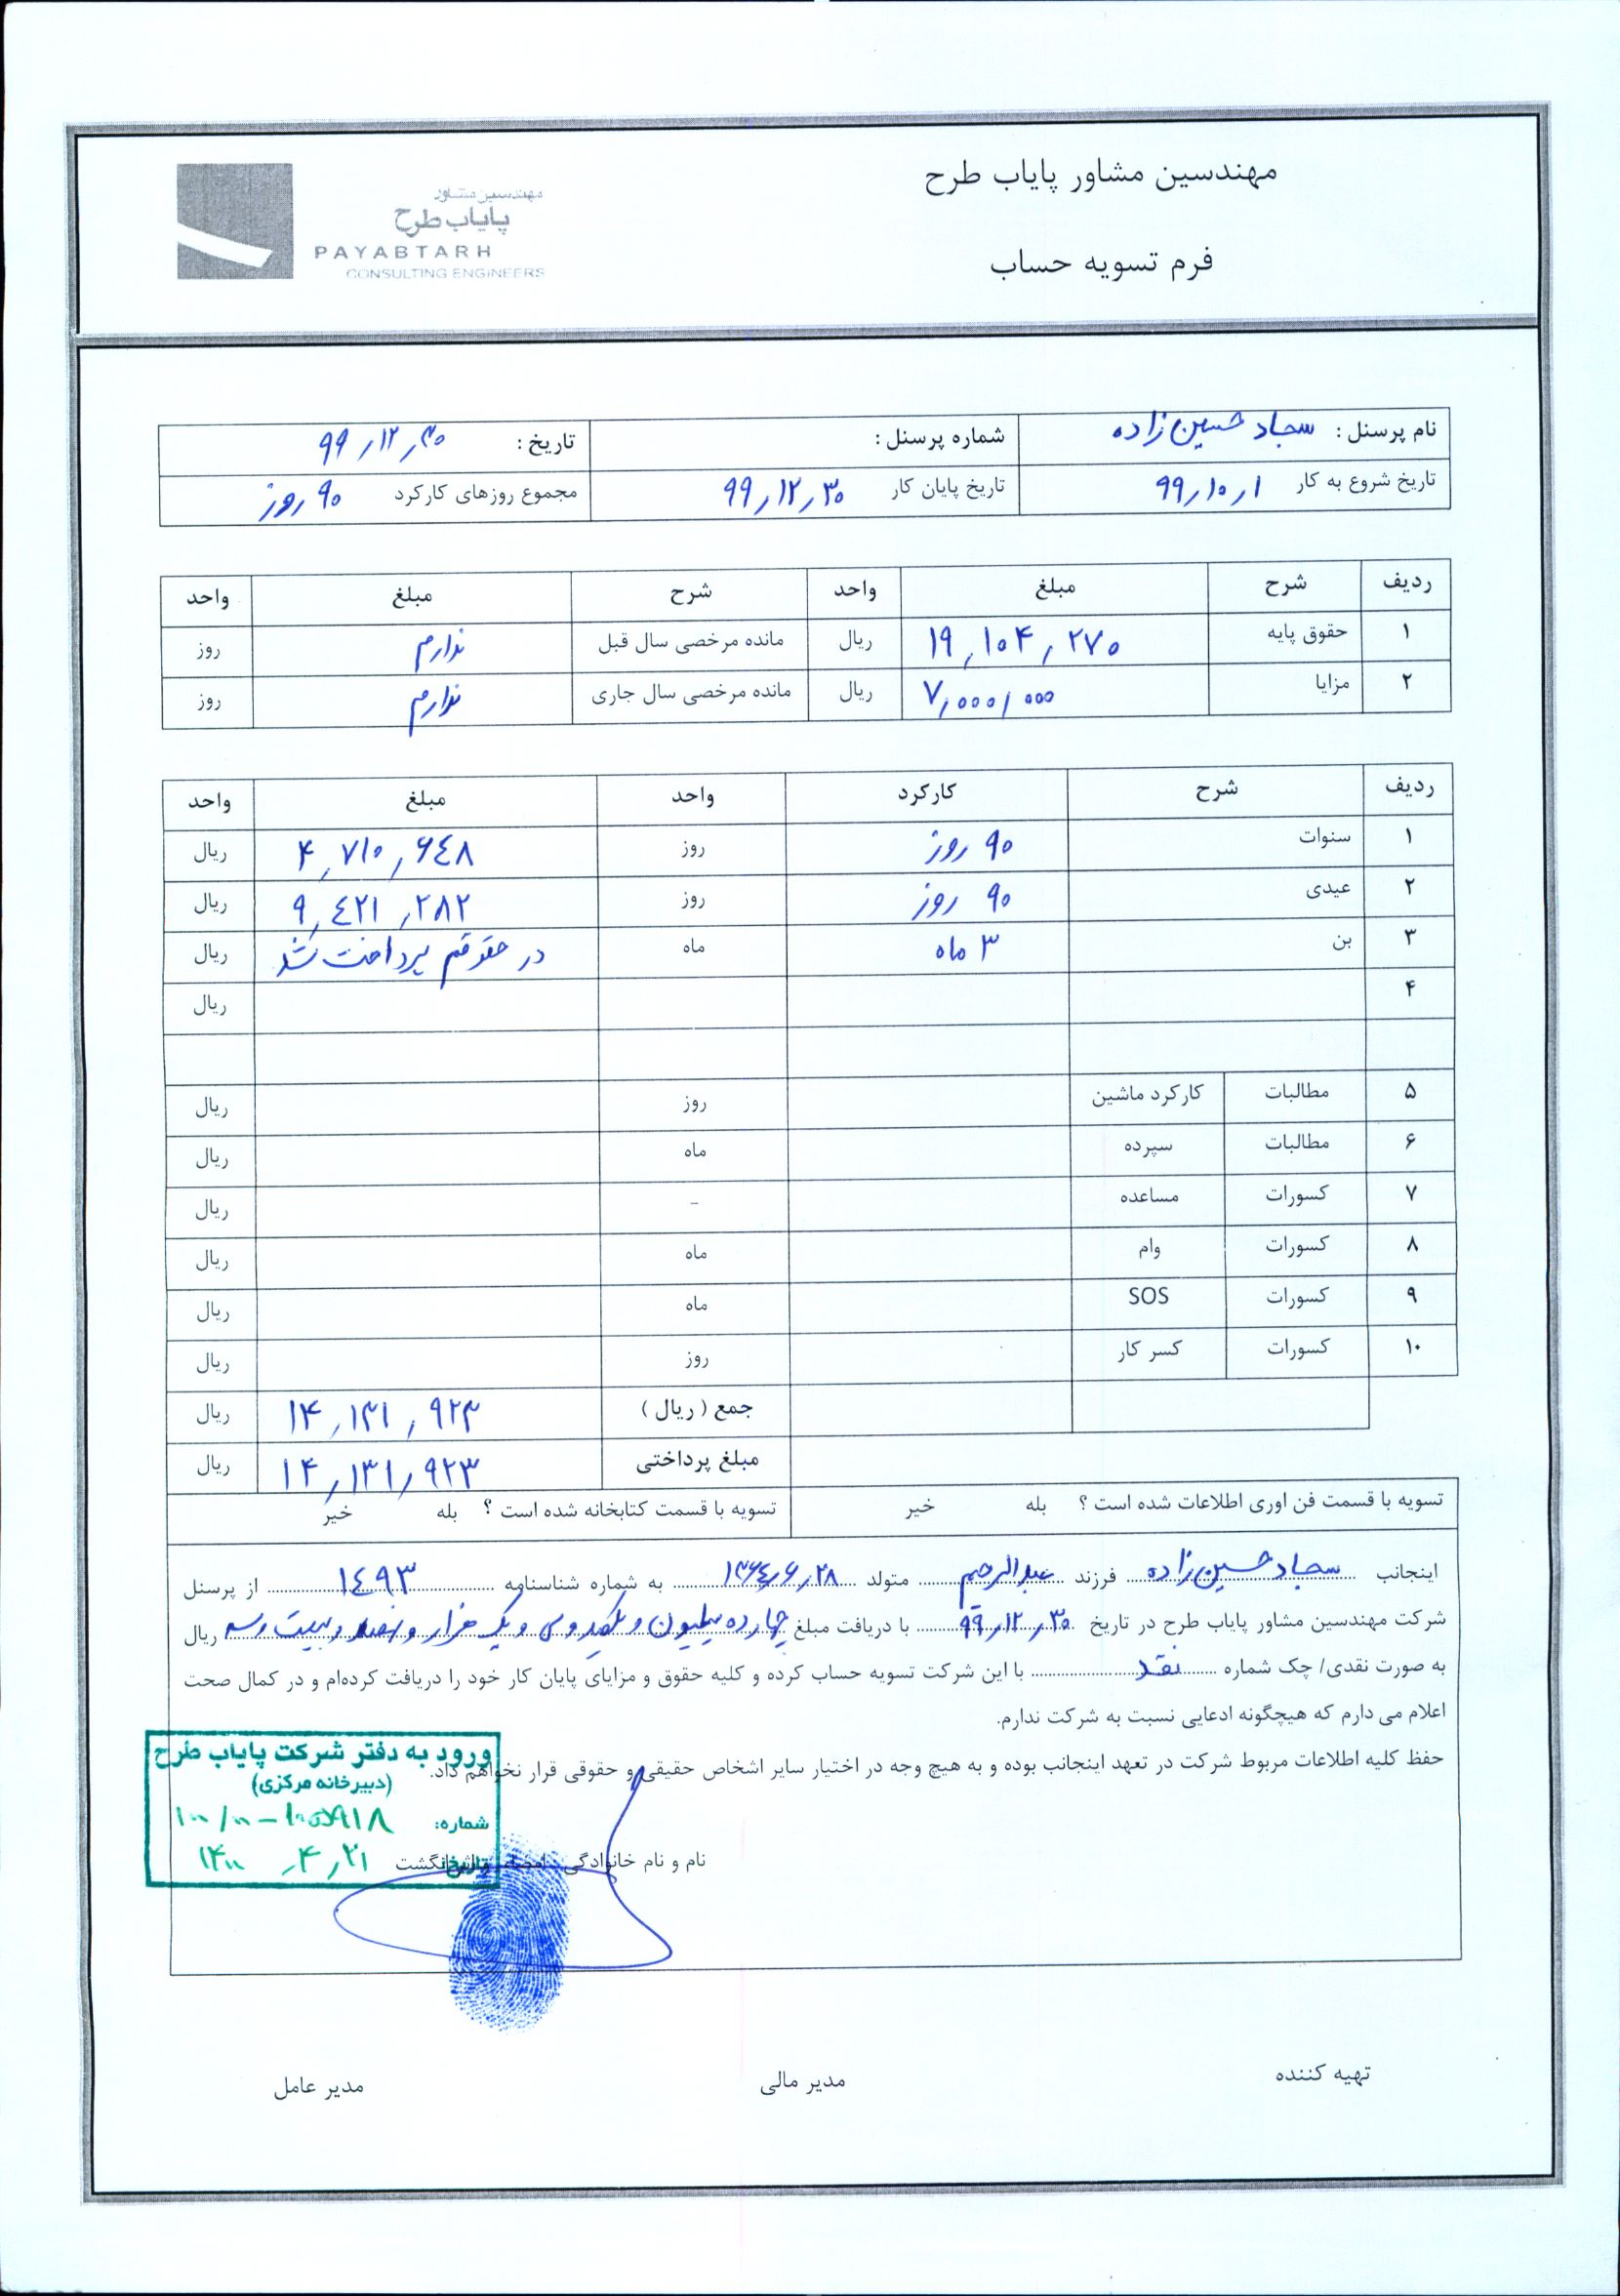 مهندسین مشاور پایاب طرح
مهندسین مشاور
پایاب طرح
PAYABTARH
CONSULTING ENGINEERS
فرم تسویه حساب
نام پرسنل : سجاد حسین زاده شماره پرسنل : تاریخ : ۹۹,۱۲,۳۰
تاریخ شروع به کار ۹۹,۱۰,۱ تاریخ پایان کار ۹۹,۱۲,۳۰ مجموع روزهای کارکرد ۹۰ روز
ردیف شرح مبلغ واحد شرح مبلغ واحد
۱ حقوق پایه ۱۹,۱۰۴,۲۷۰ ریال مانده مرخصی سال قبل ندارم روز
۲ مزایا ۷,۰۰۰,۰۰۰ ریال مانده مرخصی سال جاری ندارم روز
ردیف شرح کارکرد واحد مبلغ واحد
۱ سنوات ۹۰ روز روز ۴,۷۱۰,۶٤۸ ریال
۲ عیدی ۹۰ روز روز ۹,٤۲۱,۲۸۲ ریال
۳ بن ۳ ماه ماه در حقوقم پرداخت شد ریال
۴ ریال
۵ مطالبات کارکرد ماشین روز ریال
۶ مطالبات سپرده ماه ریال
۷ کسورات مساعده - ریال
۸ کسورات وام ماه ریال
۹ کسورات SOS ماه ریال
۱۰ کسورات کسر کار روز ریال
جمع ( ریال ) ۱۴,۱۳۱,۹۲۳ ریال
مبلغ پرداختی ۱۴,۱۳۱,۹۲۳ ریال
تسویه با قسمت فن اوری اطلاعات شده است ؟ بله خیر تسویه با قسمت کتابخانه شده است ؟ بله خیر
اینجانب سجاد حسین زاده فرزند عبدالرحیم متولد ۱۳۶٤,۶,۲۸ به شماره شناسنامه ۱٤۹۳ از پرسنل
شرکت مهندسین مشاور پایاب طرح در تاریخ ۹۹,۱۲,۳۰ با دریافت مبلغ چهارده میلیون و یکصد و سی و یک هزار و نهصد و بیست و سه ریال
به صورت نقدی/ چک شماره نقد با این شرکت تسویه حساب کرده و کلیه حقوق و مزایای پایان کار خود را دریافت کرده‌ام و در کمال صحت
اعلام می دارم که هیچگونه ادعایی نسبت به شرکت ندارم.
حفظ کلیه اطلاعات مربوط شرکت در تعهد اینجانب بوده و به هیچ وجه در اختیار سایر اشخاص حقیقی و حقوقی قرار نخواهم داد.
ورود به دفتر شرکت پایاب طرح
(دبیرخانه مرکزی)
شماره:
تاریخ: ۱۴۰۰,۴,۲۱
نام و نام خانوادگی امضاء و اثر انگشت
تهیه کننده مدیر مالی مدیر عامل